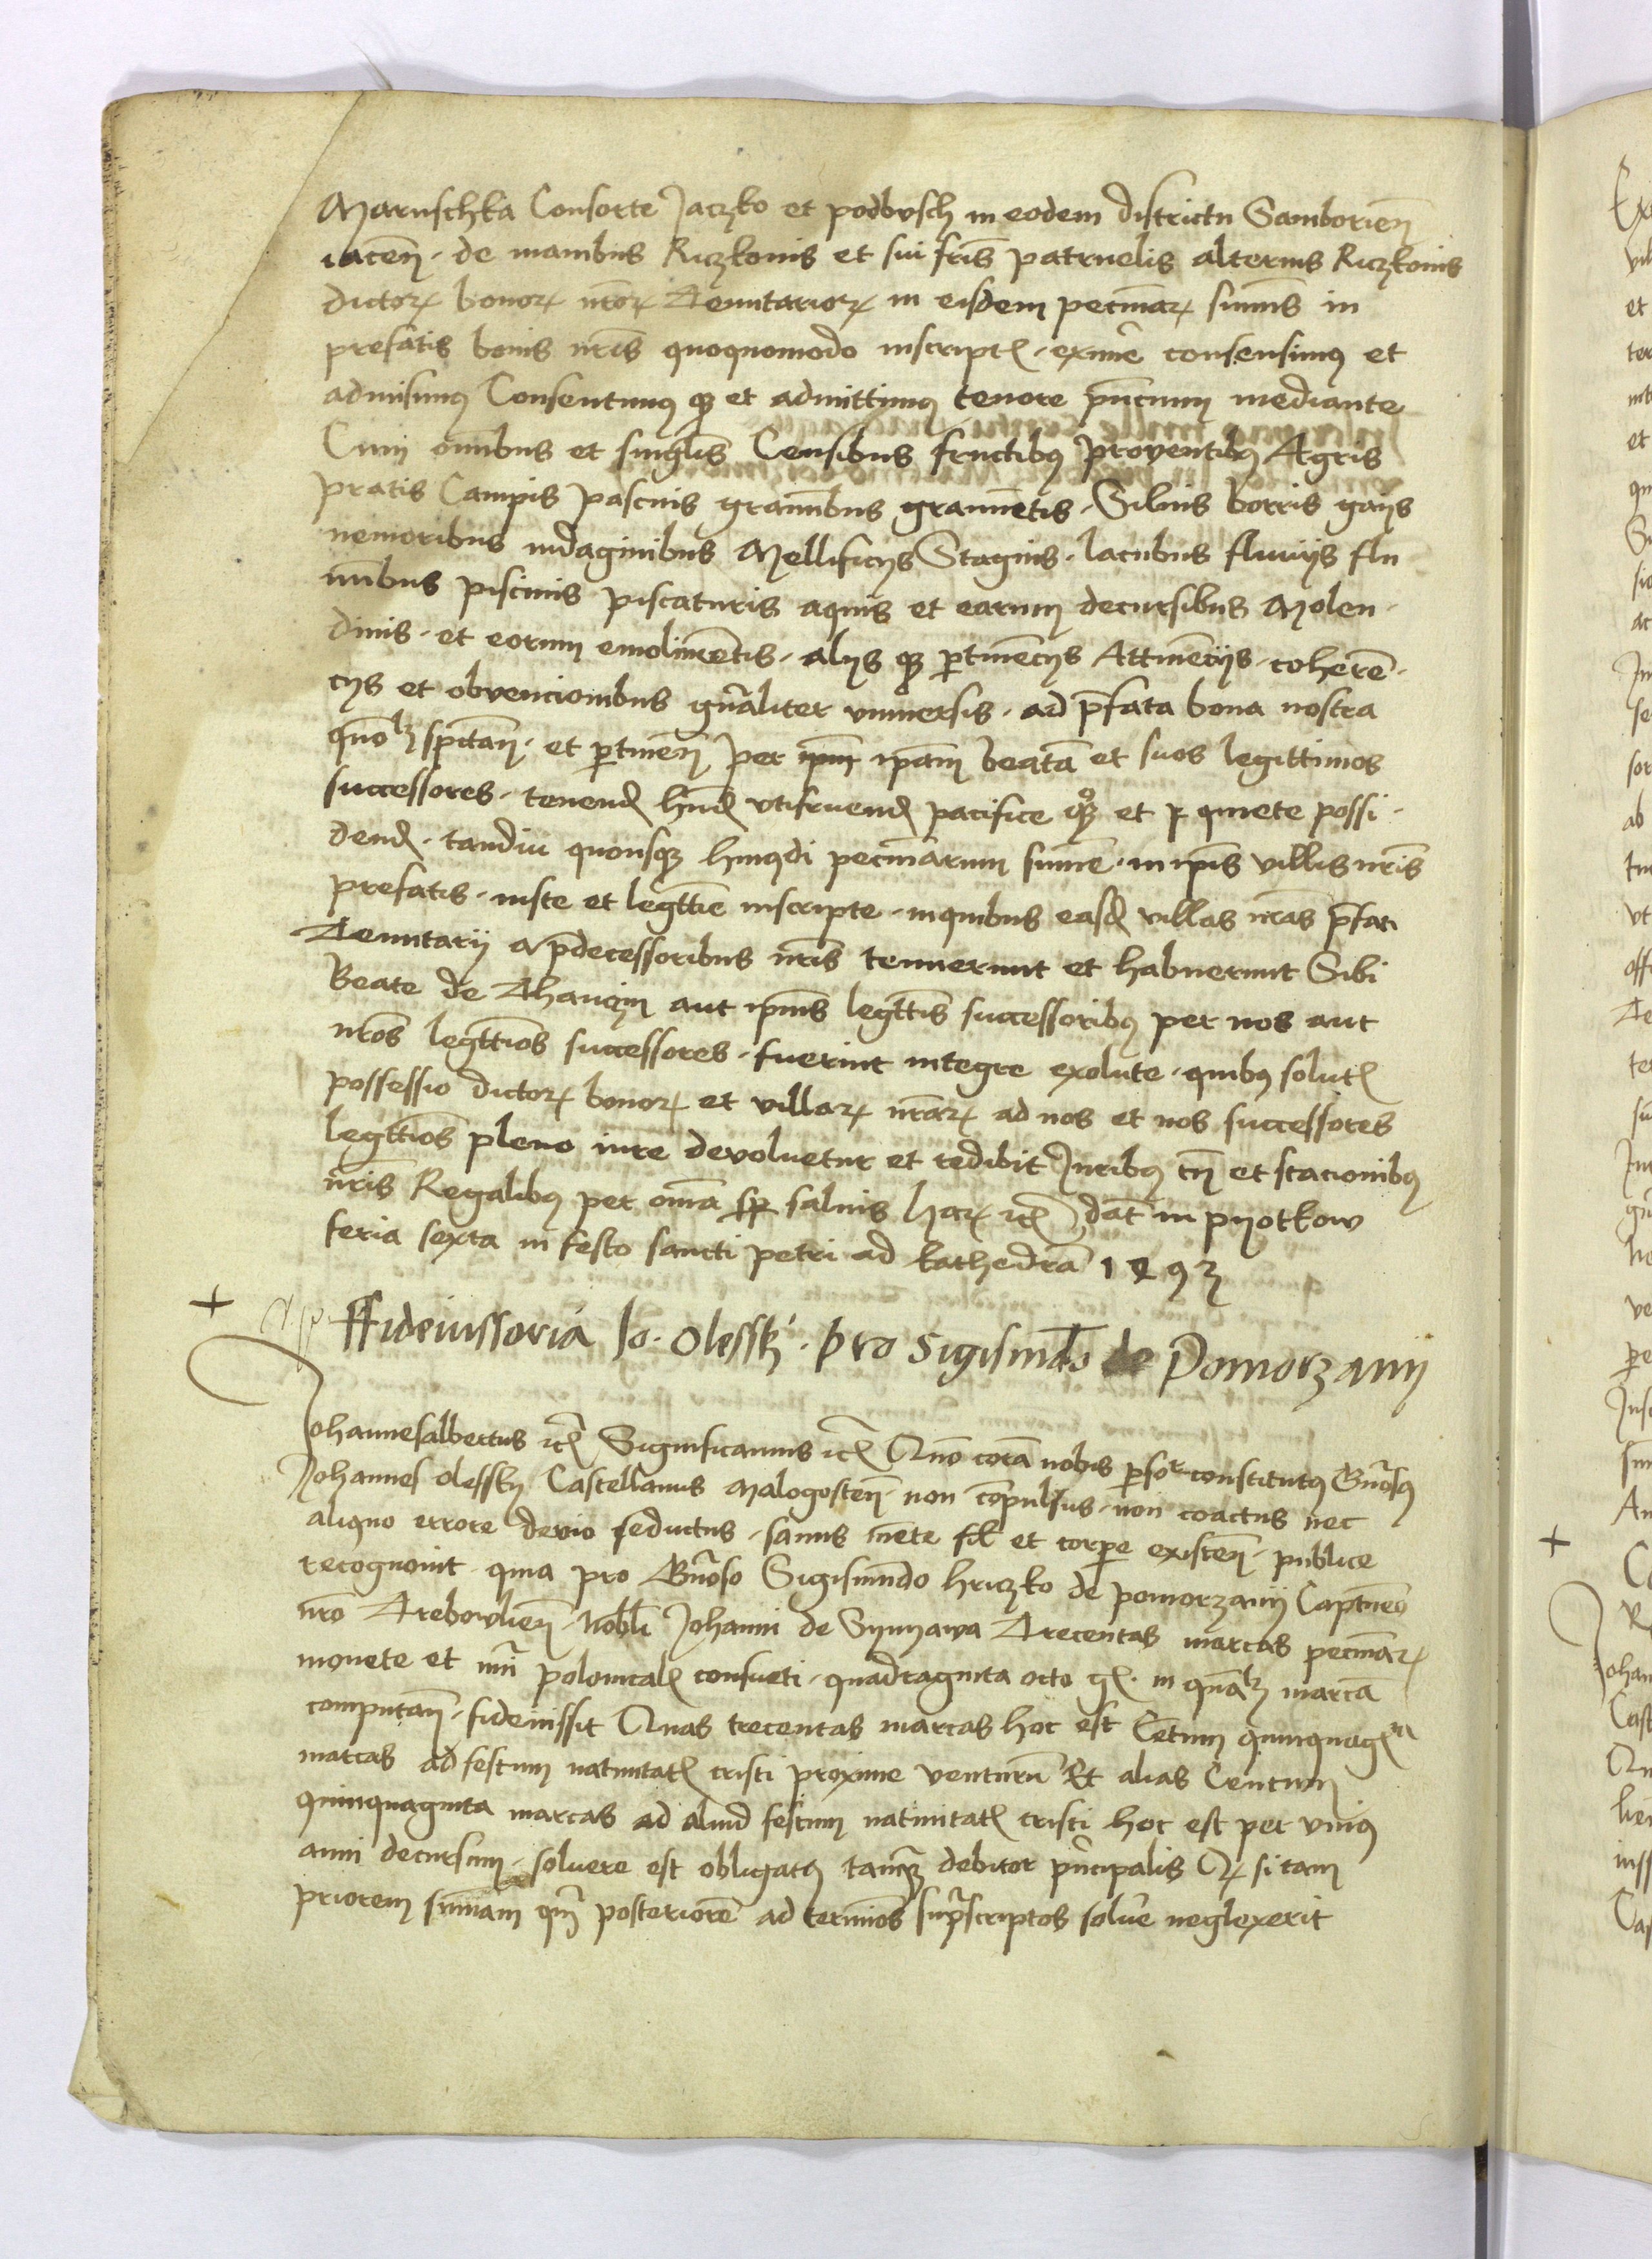 Maruschka Consorte Jaczko et podbusch in eodem districtu Samborień
iaceń · de manibus Riczkonis et sui fr̄is patruelis alterius Riczkonis
dictoꝝ bonoꝝ nr̄oꝝ Tenutarioꝝ in eisdem pecuniaꝝ sum̄is in
prefatis bonis nr̄is quoquomodo inscriptꝭ · eximē consensimꝰ et
admisimꝰ Consentimꝰ qꝫ et admittimꝰ tenore pn̄cium mediante
Cum om̄ibus et singl̄is Censibus fructibꝰ proventibꝰ Agris
pratis Campis pascuis gram̄ibus gramīetis · Siluis borris gays
nemoribus indaginibus Mellificijs Stagnis · lacubus fluviys flu
minibus piscinis piscaturis aquis et earum decursibus Molen ·
dinis · et eorum emolimētis · alijs qꝫ ꝑtinēcijs Attinēcijs · coherē ·
cijs et obvencionibus gn̄aliter vniuersis · ad p̄fata bona nostra
quōlꝫ spectań · et ꝑtineń per ip̄m ip̄am beatā et suos legittimos
successores · tenendꝭ hn̄dꝭ vtifruendꝭ pacifice qꝫ et ꝑ quiete possi ·
dendꝭ · tamdiu quousqꝫ hmōdi pecuniarum sum̄e · in ip̄is villis nr̄is
prefatis · iuste et legittīe inscripte · inquibus easdꝭ villas nr̄as p̄fati
Tenutarij a p̄decessoribus nr̄is tenuerunt et habuerunt Sibi
Beate de Thanczin aut ip̄ius legitt̄is successoribꝰ per nos aut
nr̄os legittīos successores · fuerint integre exolute · quibꝰ solutꝭ
possessio dictoꝝ bonoꝝ et villaꝝ nr̄aꝝ ad nos et nos successores
legittīos pleno iure devoluetur et redibit Juribꝰ tn̄ et stacionibꝰ
nr̄is Regalibꝰ per om̄ia sp̄ saluis haꝝ ꝛcꝭ dat̄ in pyotkow
feria sexta in festo sancti petri ad kathedrā 1493
ffideiussoria Io · Olessky · pro Sigismūdo de Pomorzany
Johannesalbertus ꝛcꝭ Significamus ꝛcꝭ Quō corā nobis ꝑsor constitutꝰ Gn̄osꝰ
Johannes Olessky Castellanus Malogosteń · non cōpulsus · non coactus nec
aliquo errore devio seductus · sanus mēte sīl et corpe existeń · publice
recognouit · quia pro Gn̄oso Sigismundo hriczko de pomorzany Captūeo
nr̄o Trebowlień · Nobl̄i Johanni de Synyawa Trecentas marcas pecuniaꝝ
monete et nūi polonicalꝭ consueti · quadraginta octo gꝭ · in quālꝫ marcā
computań · fideiussit Quas trecentas marcas hoc est Cētum quinquagꝭta
marcas ad festum natiuitatꝭ cristi proxime venturū Et alias Centum
quinquaginta marcas ad aliud festum natiuitatꝭ cristi hoc est per vniꝰ
anni decursum · soluere est obligatꝰ tamqꝫ debitor pn̄cipalis Qꝝ si tam
priorem sum̄am qm̄ posteriorē ad termīos sup̄scriptos soluē neglexerit